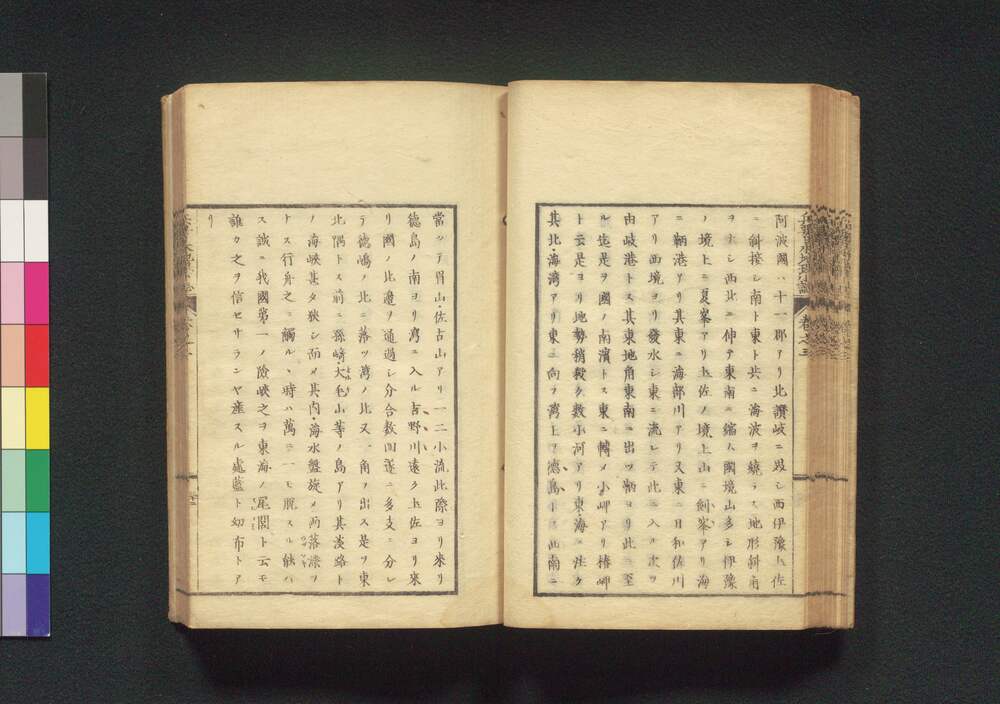 阿波國ハ十一郡アリ北讚岐ニ毀シ西伊豫土佐
ニ斜接シ南ト東ト共ニ海波ヲ繞ラス地形斜角
ヲナシ西北ニ伸テ東南ニ縮ム國境山多シ伊豫
ノ境上ニ夏峯アリ土佐ノ境上山ニ劍峯アリ海
ニ鞆港アリ其東ニ海部川アリ又東ニ日和佐川
アリ西境ヨリ發水シ東ニ流レテ此ニ入ル次ヲ
由岐港トス其東地角東南ニ出ツ鞆ヨリ此ニ至
ル迄是ヲ國ノ南濱トス東ニ轉メ小岬アリ椿岬
ト云是ヨリ地勢稍殺ク數小河アリ東海ニ注ク
其北海灣アリ東ニ向フ灣上ヲ德島トス此南ニ
當ツテ眉山佐古山アリ一二小流此際ヨリ來リ
德島ノ南ヨリ灣ニ入ル吉野川遠ク土佐ヨリ來
リ國ノ北邊ヲ通過シ分合數回遂ニ多支ニ分レ
テ德嶋ノ北ニ落ツ灣ノ北又一角ヲ出ス是ヲ東
北隅トス前ニ孫﨑大毛山等ノ島アリ其淡路ト
ノ海峽甚タ狹シ而メ其内海水盤旋メ兩落漈ヲ
トス行舟之ニ觸ルヽ時ハ萬ニ一モ脱スル能ハ
ス誠ニ我國第一ノ險峽之ヲ東海ノ尾閭ト云モ
誰カ之ヲ信セサランヤ產スル處藍ト切布トア
リ
卷之三